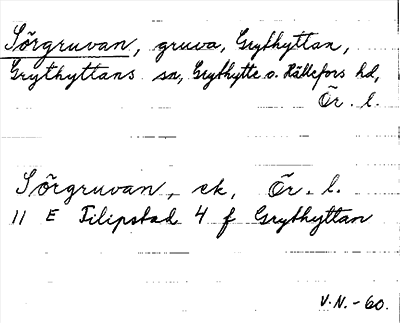 Sörgruvan, gruva, Grythyttan,
Grythyttans sn, Grythytte o. Hällefors hd,
Ör. l.
Sörgruvan, ek, Ör. l.
11 E Filipstad 4 f Grythyttan
V.N. -60.